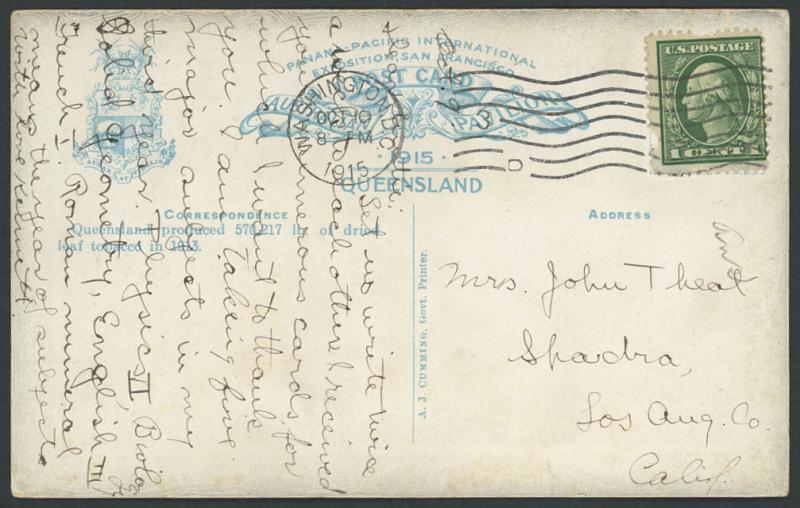 PANAMA-PACIFIC INTERNATIONAL
EXPOSITION, SAN FRANCISCO
POST CARD
AUSTRALIAN PAVILION
· 1915 ·
QUEENSLAND
U.S. POSTAGE
1 CENT 1
WASHINGTON, D.C.
OCT 19
8 PM
1915
3
D
CORRESPONDENCE
Queensland produced 570,217 lb. of dried
leaf tobacco in 1913.
ADDRESS
A. J. CUMMING, Govt. Printer.
Mrs. John Theal
Spadra,
Los Ang. Co.
Calif.
Let us write twice
a to each other. I received
your numerous cards for
which I want to thank
you. I am taking five
major subjects in my
third year. Physics II, Biology
Solid Geometry, English III
French I. Roman numeral
means the year of subjects
With love